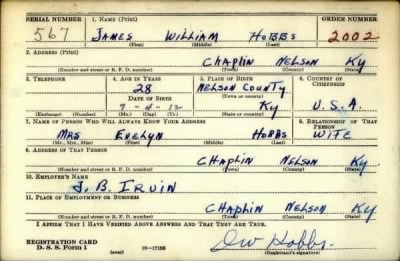 SERIAL NUMBER 1. NAME (Print) ORDER NUMBER
567 JAMES WILLIAM HOBBS 2002
(First) (Middle) (Last)
2. ADDRESS (Print)
CHAPLIN NELSON KY
(Number and street or R. F. D. number) (Town) (County) (State)
3. TELEPHONE 4. AGE IN YEARS 5. PLACE OF BIRTH 6. COUNTRY OF CITIZENSHIP
28 NELSON COUNTY
DATE OF BIRTH (Town or county)
7-4-12 KY U.S.A.
(Exchange) (Number) (Mo.) (Day) (Yr.) (State or country)
7. NAME OF PERSON WHO WILL ALWAYS KNOW YOUR ADDRESS 8. RELATIONSHIP OF THAT PERSON
MRS EVELYN HOBBS WIFE
(Mr., Mrs., Miss) (First) (Middle) (Last)
9. ADDRESS OF THAT PERSON
CHAPLIN NELSON KY
(Number and street or R. F. D. number) (Town) (County) (State)
10. EMPLOYER'S NAME
J. B. IRVIN
11. PLACE OF EMPLOYMENT OR BUSINESS
CHAPLIN NELSON KY
(Number and street or R. F. D. number) (Town) (County) (State)
I AFFIRM THAT I HAVE VERIFIED ABOVE ANSWERS AND THAT THEY ARE TRUE.
REGISTRATION CARD
D. S. S. Form 1 (over) 16—17105 Hobbs.
(Registrant's signature)